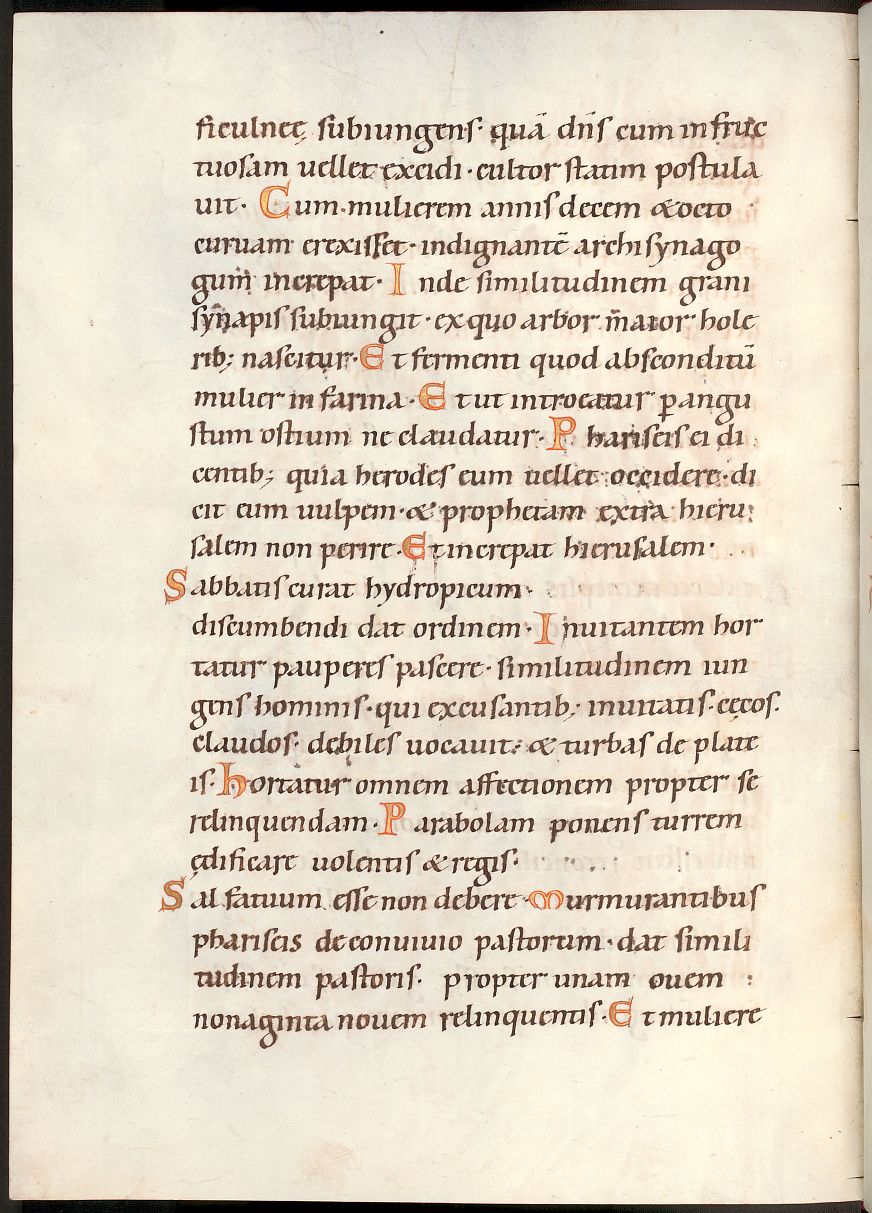 ficulneę, subiungens· quā dn̄s cum infruc
tuosam uellet excidi· cultor statim postula
uit· Cum mulierem annis decem & octo
curuam erexisset· indignantē archisynago
gum increpat· Inde similitudinem grani
synapis subiungit· ex quo arbor maior hole
rib; nascitur· Et fermenti quod absconditū
mulier in farina· Et ut introeatur ꝑ angu
stum ostium ne claudatur· Phariseis ei di
centib; quia herodes eum uellet occidere· di
cit eum uulpem· & prophetam extra hieru
salem non perire· Et increpat hierusalem·
Sabbatis curat hydropicum·
discumbendi dat ordinem· Inuitantem hor
tatur pauperes pascere· similitudinem iun
gens hominis· qui excusantib; inuitatis· cęcos·
claudos· debiles uocauit; & turbas de plate
is· hortatur omnem affectionem propter se
relinquendam· Parabolam ponens turrem
ędificare uolentis & regis·
Sal fatuum esse non debere· Murmurantibus
phariseis de conuiuio pastorum· dat simili
tudinem pastoris· propter unam ouem
nonaginta nouem relinquentis· Et muliere